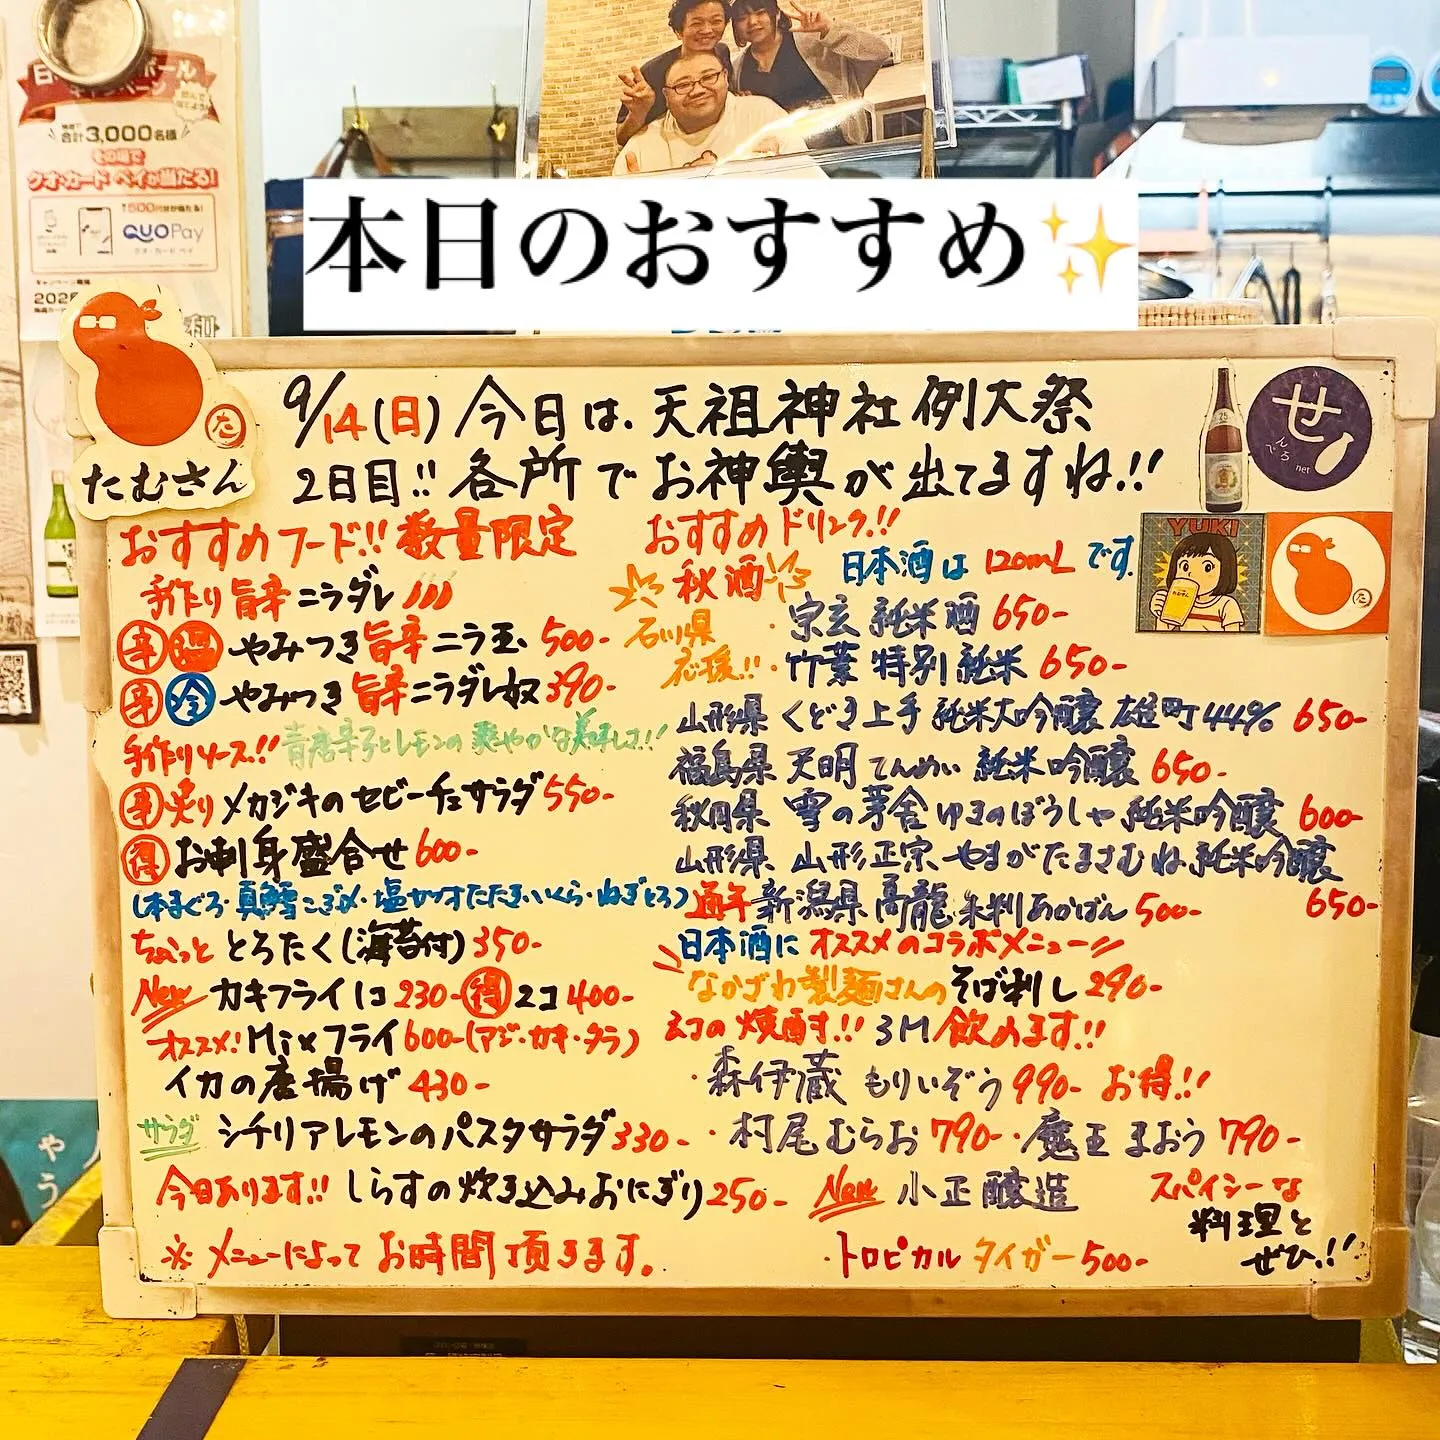 合計3,000名様
その場で
クオ・カード ペイが当たる!
QUO Pay
クオ・カード ペイ
本日のおすすめ✨
たむさん
た
せ
んべろ
net
YUKI
た
9/14(日) 今日は、天祖神社例大祭
2日目!! 各所でお神輿が出てますね!!
おすすめフード!! 数量限定
手作り旨辛ニラダレ
辛 温 やみつき旨辛ニラ玉 500-
辛 冷 やみつき旨辛ニラダレ奴 390-
手作りソース!! 青唐辛子とレモンの爽やかな美味しさ!!
辛 炙り メカジキのセビーチェサラダ 550-
得 お刺身盛合せ 600-
(本まぐろ・真鯛こぶ〆・塩カツオたたき・いくら・ねぎとろ)
ちょこっと とろたく(海苔付) 350-
New カキフライ 1コ 230- 得 2コ 400-
オススメ! Mixフライ 600-(アジ・カキ・タラ)
イカの唐揚げ 430-
サラダ シチリアレモンのパスタサラダ 330-
今日あります!! しらすの炊き込みおにぎり 250-
※メニューによってお時間頂きます。
おすすめドリンク!!
秋酒 日本酒は120mLです。
石川県 ・宗玄 純米酒 650-
応援!! ・竹葉 特別純米 650-
山形県 くどき上手 純米大吟醸 雄町44% 650-
福島県 天明 てんめい 純米吟醸 650-
秋田県 雪の茅舎 ゆきのぼうしゃ 純米吟醸 600-
山形県 山形正宗 やまがたまさむね 純米吟醸
650-
通年 新潟県 高龍 朱判 あかばん 500-
日本酒に オススメのコラボメニュー
なかざわ製麺さんの そば刺し 290-
幻の焼酎!! 3M飲めます!!
・森伊蔵 もりいぞう 990- お得!!
・村尾 むらお 790- ・魔王 まおう 790-
New 小正醸造
スパイシーな
料理と
ぜひ!!
・トロピカル タイガー 500-